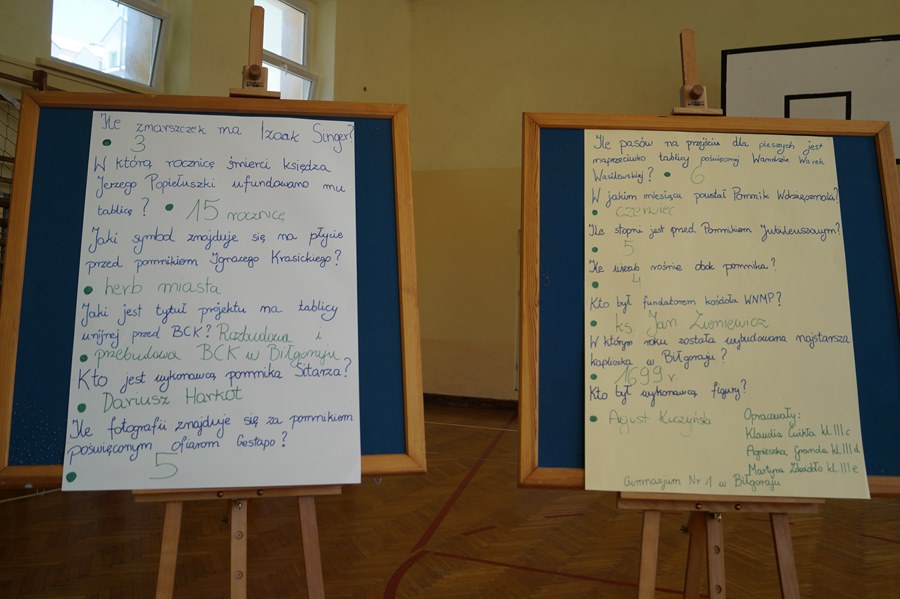 Ile zmarszczek ma Izaak Singer?
3
W którą rocznicę śmierci księdza
Jerzego Popiełuszki ufundowano mu
tablicę? 15 rocznicę
Jaki symbol znajduje się na płycie
przed pomnikiem Ignacego Krasickiego?
herb miasta
Jaki jest tytuł projektu na tablicy
unijnej przed BCK? Rozbudowa i
przebudowa BCK w Biłgoraju
Kto jest wykonawcą pomnika Sitarza?
Dariusz Harkot
Ile fotografii znajduje się za pomnikiem
poświęconym ofiarom Gestapo?
5
Ile pasów na przejściu dla pieszych jest
naprzeciwko tablicy poświęconej Wandzie Wasilewskiej?
6
W jakim miesiącu powstał Pomnik Wdzięczności?
czerwiec
Ile stopni jest przed Pomnikiem Jubileuszowym?
5
Ile wierzb rośnie obok pomnika?
4
Kto był fundatorem kościoła WNMP?
ks Jan
W którym roku została wybudowana najstarsza
kapliczka w Biłgoraju?
1699 r.
Kto był wykonawcą figury?
Kuczyński
Opracowały:
Klaudia Ćwikła kl. III c
Agnieszka Granda kl. III d
Martyna kl. III e
Gimnazjum Nr 1 w Biłgoraju